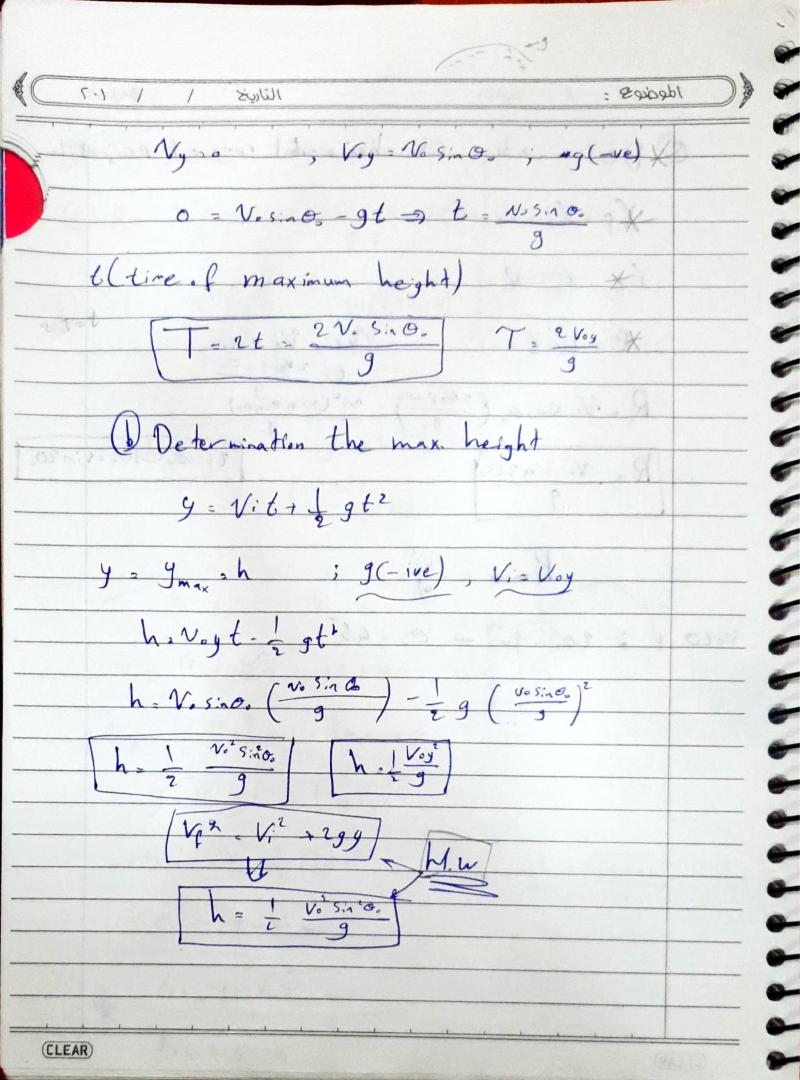 الموضوع :
التاريخ / / ٢٠١
Vy = 0 , Voy = Vo sin θo ; g(-ve)
0 = Vo sin θo - gt ⇒ t = Vo sin θo / g
t (time of maximum height)
T = 2t = 2 Vo sin θo / g T = 2 Voy / g
ⓑ Determination the max. height
y = Vi t + 1/2 gt²
y = y max = h ; g(-ive) , Vi = Voy
h = Voy t - 1/2 gt²
h = Vo sin θo (Vo sin θo / g) - 1/2 g (Vo sin θo / g)²
h = 1/2 Vo² sin² θo / g h = 1/2 Voy² / g
Vf² = Vi² + 2gy
H.w
⇓
h = 1/2 Vo² sin² θo / g
CLEAR